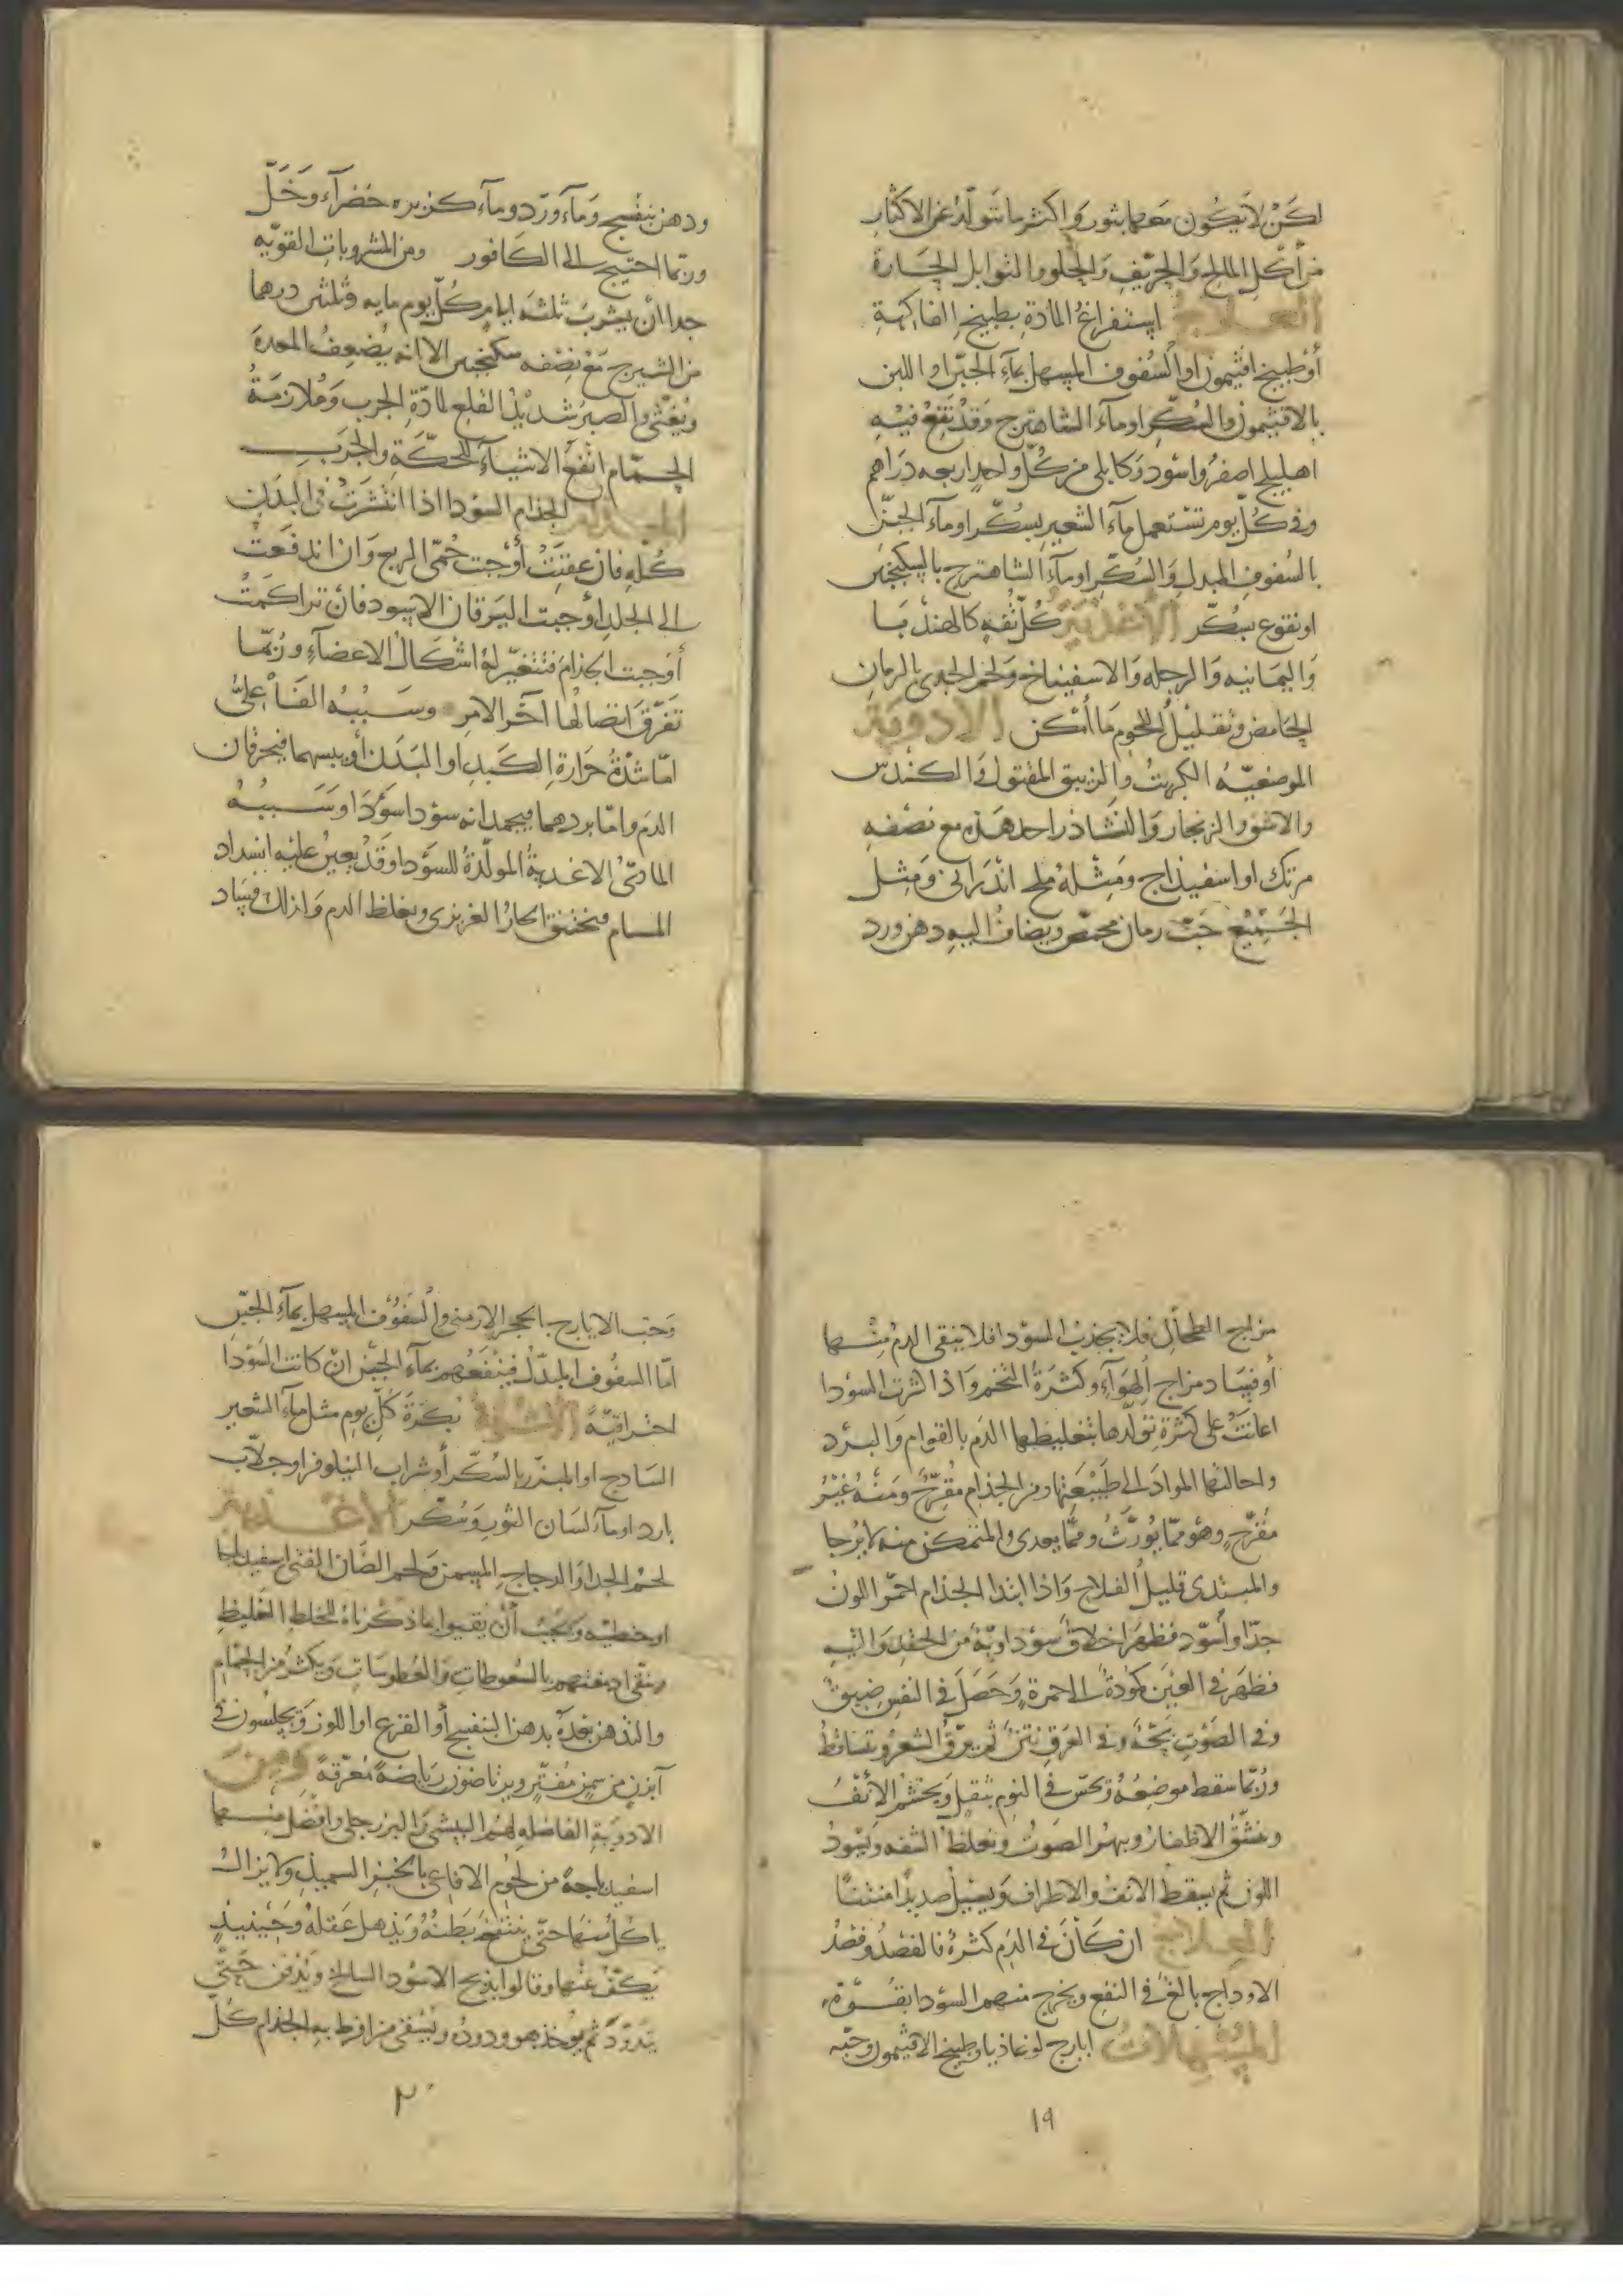 لكن لا يكون معها بثور واكثر ما تتولد عن الاكثار
من أكل المالح والحريف والحلو والتوابل الحارة
العلاج استفراغ المادة بطبيخ الفاكهة
أو طبيخ افتيمون او السفوف المسهل بماء الجبن او اللبن
بالافتيمون والسكر او ماء الشاهترج وقد نقع فيه
اهليلج اصفر واسود وكابلى من كل واحد اربعه دراهم
وفى كل يوم تستعمل ماء الشعير بسكر او ماء الجبن
بالسفوف المبدل والسكر او ماء الشاهترج بالسكنجبين
او نقوع بسكر الأغذية كل تفه كالهندبا
واليمانيه والرجله والاسفيناخ ولحم الجدى بالرمان
الحامض وتقليل اللحوم ما أمكن الأدوية
الموضعيه الكبريت والزيبق المقتول والكندس
والاشق والزنجار والنشاذر احد هذه مع نصفه
مرتك او اسفيذاج ومثله ملح اندرانى ومثل
الجميع حب رمان محمص ويضاف اليه دهن ورد
ودهن بنفسج وماء ورد وماء كزبره خضراء وخل
وربما احتيج الى الكافور ومن المشروبات القويه
جدا أن يشرب ثلثه ايام كل يوم مايه وثلثين درهما
من الشيرج مع نصفه سكنجبين الا انه يضعف المعدة
ويغثى والصبر شديد القلع لمادة الجرب وملازمة
الحمام انفع الاشياء للحكة والجرب
الجذام السودا اذا انتشرت فى البدن
كله فان عفنت أوجبت حمى الربع وان اندفعت
الى الجلد أوجبت اليرقان الاسود فان تراكمت
أوجبت الجذام فتتغير له اشكال الاعضاء وربما
تفرق اتصالها آخر الامر وسببه الفاعلى
اما شدة حرارة الكبد او البدن أو يبسهما فيحرقان
الدم واما بردهما فيجمدانه سودا سودا وسببه
المادى الاغدية المولدة للسودا وقد يعين عليه انسداد
المسام فيختنق الحار الغريزى ويغلظ الدم وكذلك فساد
مزاج الطحال فلا يجذب السودا فلا ينقى الدم منها
أو فساد مزاج الهواء وكثرة التخم واذا كثرت السودا
اعانت على كثرة تولدها بتغليظها الدم بالقوام والبرد
واحالتها المواد الى طبيعتها ومن الجذام مقرح ومنه غير
مقرح وهو مما يورث ومما يعدى والمتمكن منه لا يرجا
والمبتدى قليل الفلاح واذا ابتدا الجذام احمر اللون
جدا وأسود فظهر اخلاق سوداوية من الحقد والتيه
فظهر فى العين كمودة الى حمرة وحصل فى النفس ضيق
وفى الصوت بحة وفى العرق نتن ثم يرق الشعر وتساقط
وربما سقط موضعه ويحس فى النوم بثقل ويخشم الأنف
وتشقق الاظفار ويبهر الصوت وتغلظ الشفه ويسود
اللون ثم يسقط الانف والاطراف ويسيل صديدا منتنا
العلاج ان كان فى الدم كثرة فالفصد وفصد
الاوداج بالغ فى النفع ويخرج منهم السودا بقوة
المسهلات ايارج لوغاذيا وطبيخ الافتيمون وحبه
١٩
وحب الايارج بالحجر الارمنى والسفوف المسهل بماء الجبن
اما السفوف المبدل فينفعهم بماء الجبن ان كانت السودا
احتراقية الأشربة بكرة كل يوم مثل ماء الشعير
السادج او المبزر بالسكر أو شراب النيلوفر او جلاب
بارد او ماء لسان الثور وسكر الأغذية
لحم الجدا والدجاج المسمن ولحم الضان الفتى اسفيدباجا
او حنطيه ويجب أن يقيوا بما ذكرناه للخلط الغليظ
وينقى ادمغتهم بالسعوطات والعطوسات ويكثر من الحمام
والتدهن بعده بدهن البنفسج أو القرع او اللوز ويجلسون فى
آبزن من سمن مفتر ويرتاضون رياضة معرقة ومن
الادوية الفاضله لهم البيشى والبزرجلى وافضل منها
اسفيدباجه من لحوم الافاعى بالخبز السميذ ولا يزال
ياكل منها حتى ينتفخ بطنه ويذهل عقله وحينيذ
يكف عنها وقالوا يذبح الاسود السالخ ويدفن حتى
يدود ثم يوخذ هو ودوده ويسقى من افرط به الجذام كل
٢٠